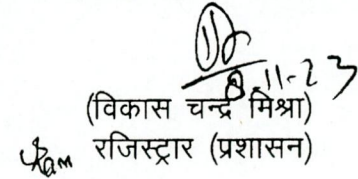 8.11-23
(विकास चन्द्र मिश्रा)
रजिस्ट्रार (प्रशासन)